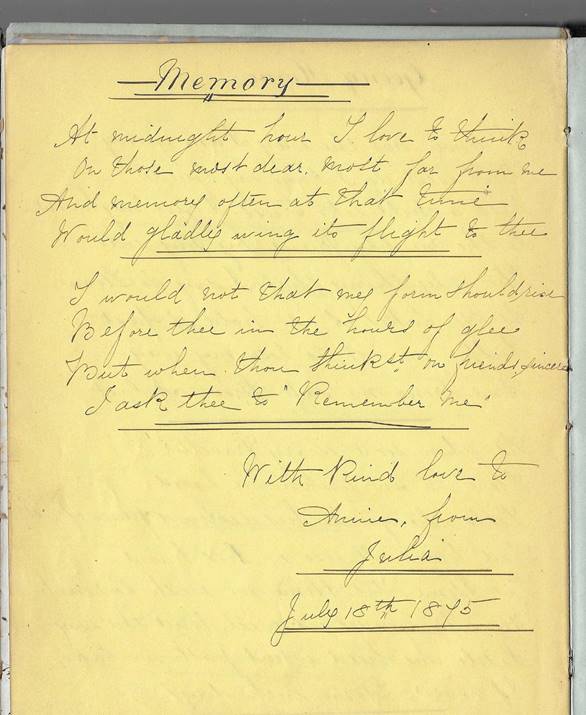 Memory
At midnight hour I love to think
On those most dear, most far from me
And memory often at that time
Would gladly wing its flight to thee
I would not that my form should rise
Before thee in the hours of glee
But when thou thinkst, on friends, sincere
I ask thee to "Remember Me"
With Kind love to
Annie, from
Julia
July 18th 1895